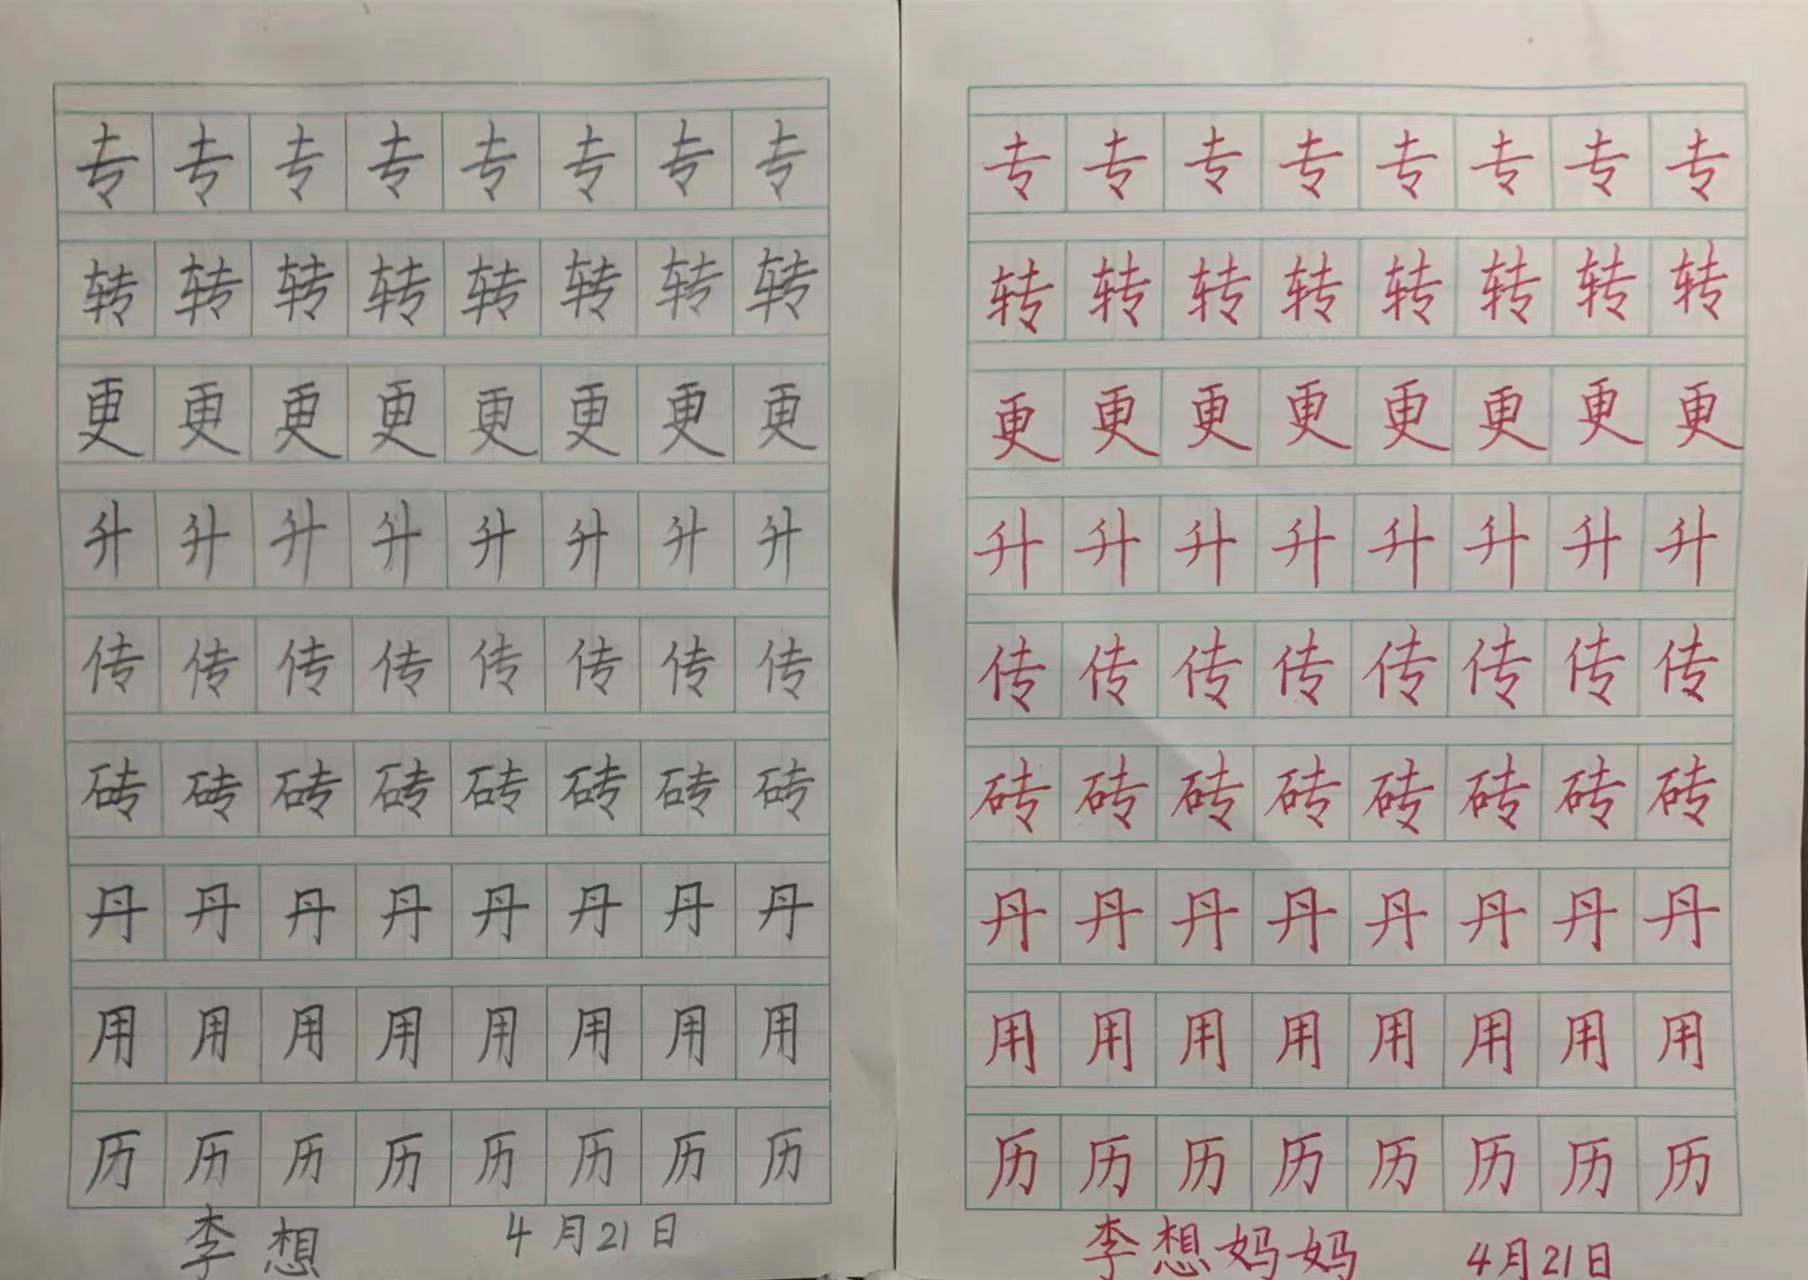 专专专专专专专专
转转转转转转转转
更更更更更更更更
升升升升升升升升
传传传传传传传传
砖砖砖砖砖砖砖砖
丹丹丹丹丹丹丹丹
用用用用用用用用
历历历历历历历历
李想 4月21日
专专专专专专专专
转转转转转转转转
更更更更更更更更
升升升升升升升升
传传传传传传传传
砖砖砖砖砖砖砖砖
丹丹丹丹丹丹丹丹
用用用用用用用用
历历历历历历历历
李想妈妈 4月21日